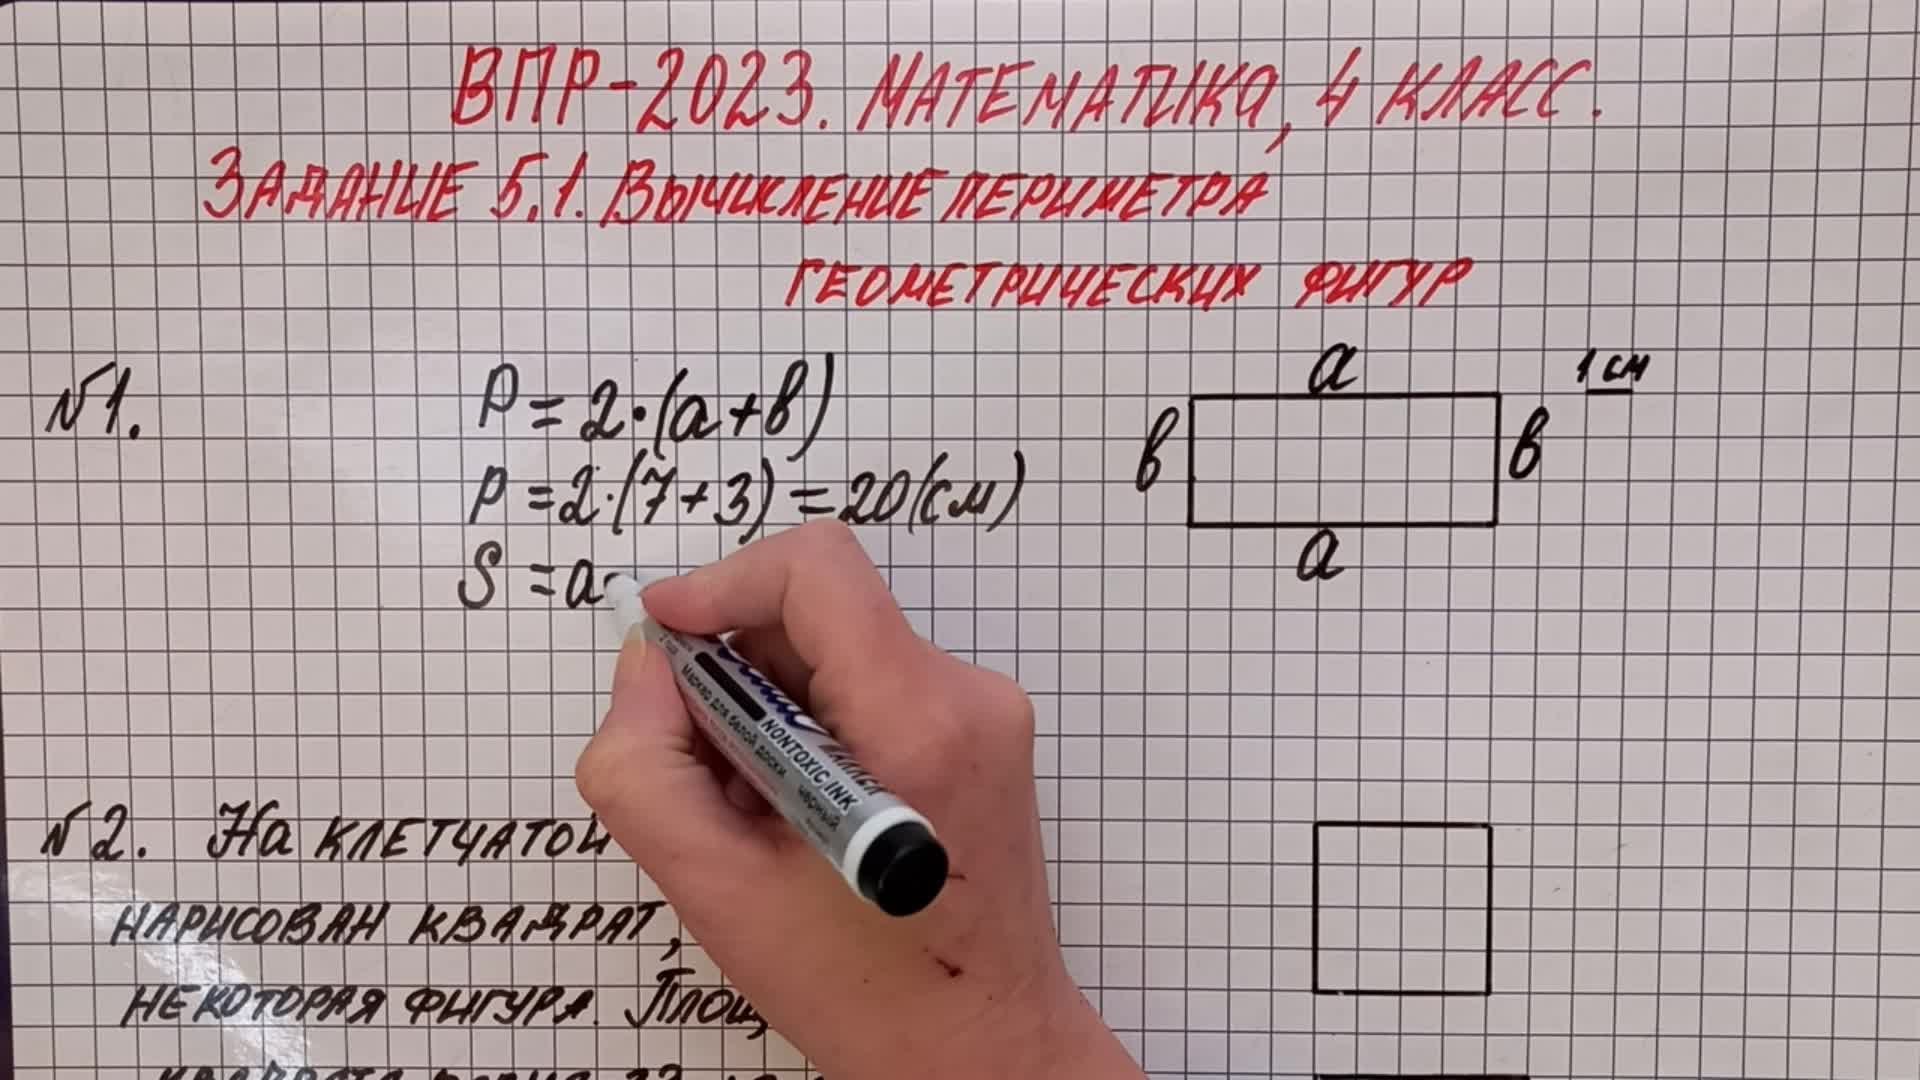 ВПР-2023. МАТЕМАТИКА, 4 КЛАСС.
ЗАДАНИЕ 5.1. ВЫЧИСЛЕНИЕ ПЕРИМЕТРА
ГЕОМЕТРИЧЕСКИХ ФИГУР
№1.
P = 2·(a+b)
P = 2·(7+3) = 20(см)
S = a
a
1 см
b
b
a
№2. На КЛЕТЧАТОЙ
НАРИСОВАН КВАДРАТ,
НЕКОТОРАЯ ФИГУРА. Площ
Маркер для белой доски
NONTOXIC INK
чёрный